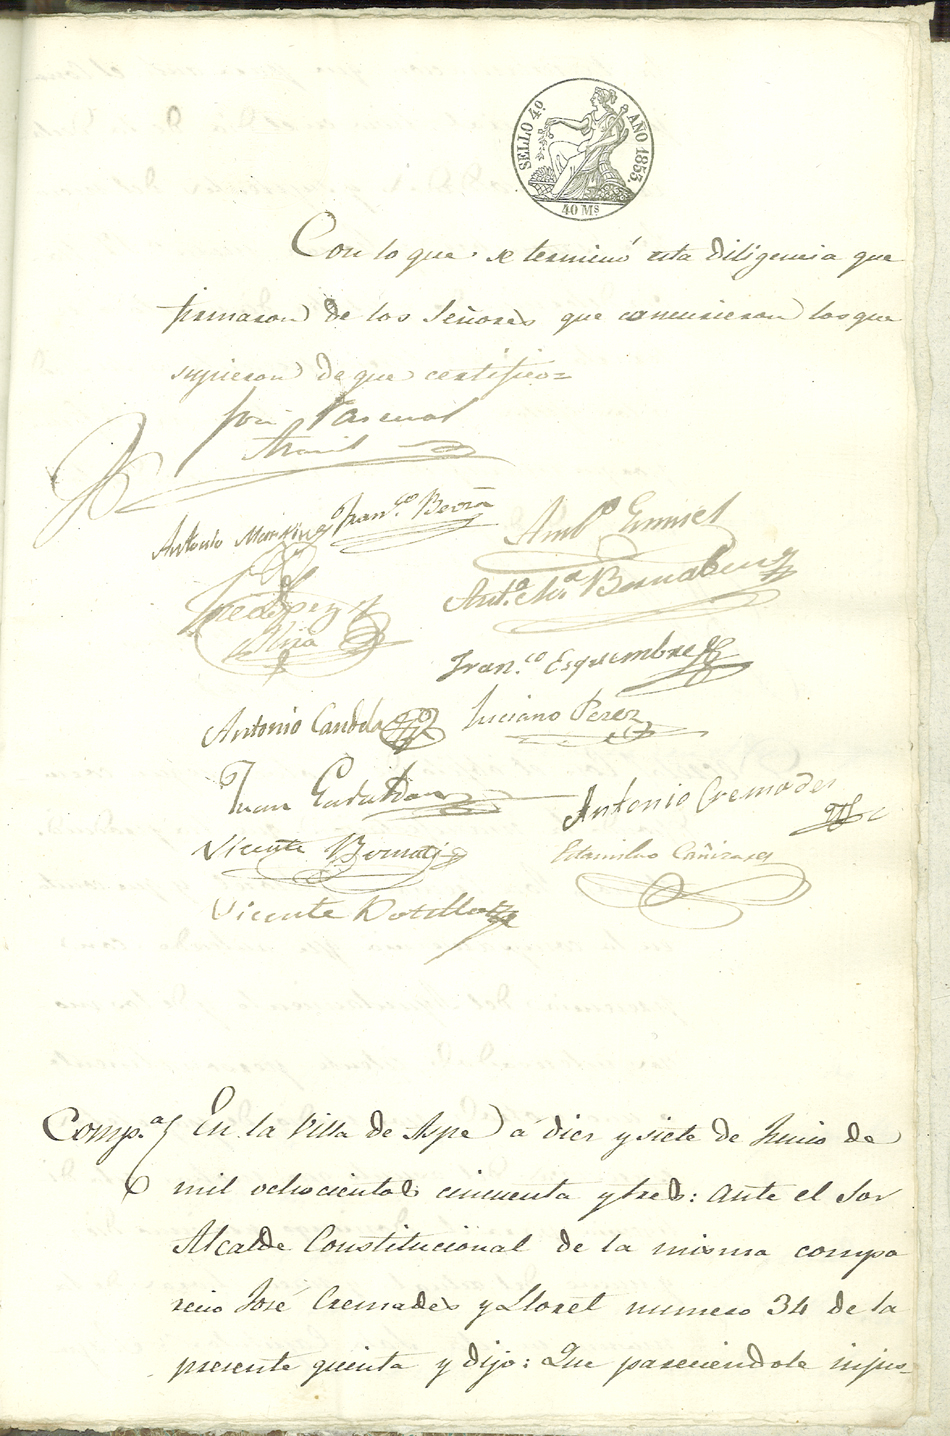 SELLO 4º. AÑO 1853.
40 Ms
Con lo que se terminó esta diligencia que
firmaron de los Señores que concurrieron los que
supieron de que certifico=
José Pascual
Antonio Martinez Franco. Beviá
Ambo.
Anta. Ma. Bernabeu
Franco. Esquembre
Antonio Candela Luciano Perez
Juan
Antonio Cremades
Vicente Bernat
Estanislao Cañizares
Vicente Botella
Compa. En la Villa de Aspe á diez y siete de Junio de
mil ochocientos cincuenta y tres: ante el Sor
Alcalde Constitucional de la misma compa
recio José Cremades y Lloret numero 34 de la
presente quinta y dijo: Que pareciendole injus-